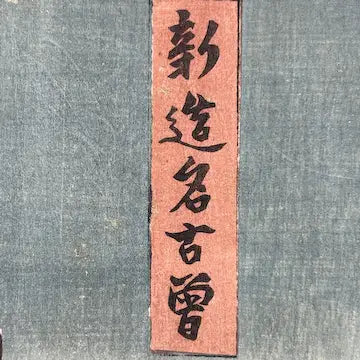 新造名古曽